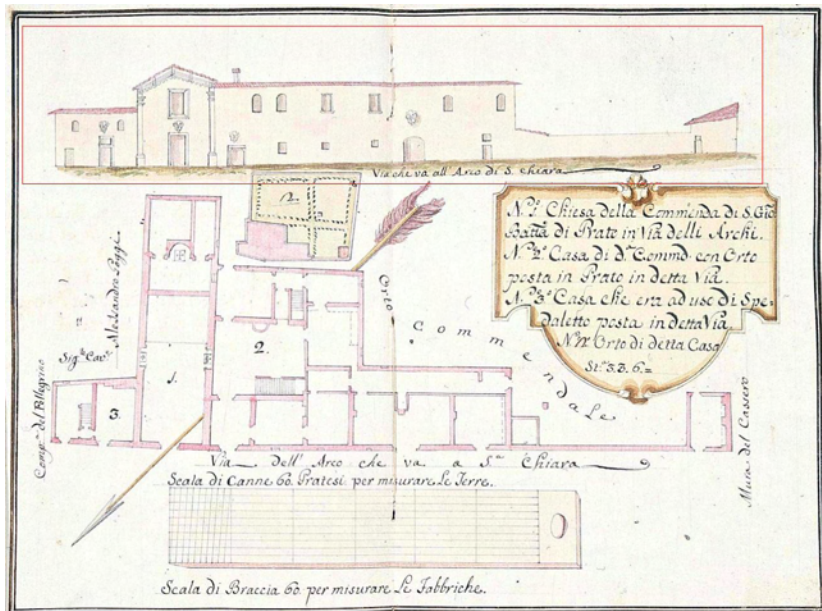 Via che va all' Arco di S. Chiara
N.º 1.º Chiesa della Commenda di S. Gio
Batta di Prato in Via delli Archi.
N.º 2.º Casa di d.ª Commd. con Orto
posta in Prato in detta Via.
N.º 3.º Casa che era ad uso di Spe-
daletto posta in detta Via.
Orto di detta Casa
St.ª 3. 3. 6.=
12.
Orto Commendale
Sig.re Cav.re Alessandro Poggi
Comp.ª del Pellegrino
1.
2.
3.
Mura del Cassero
Via dell' Arco che va a S.ta Chiara
Scala di Canne 60. Pratesi per misurare Le Terre.
Scala di Braccia 60. per misurare Le Fabbriche.